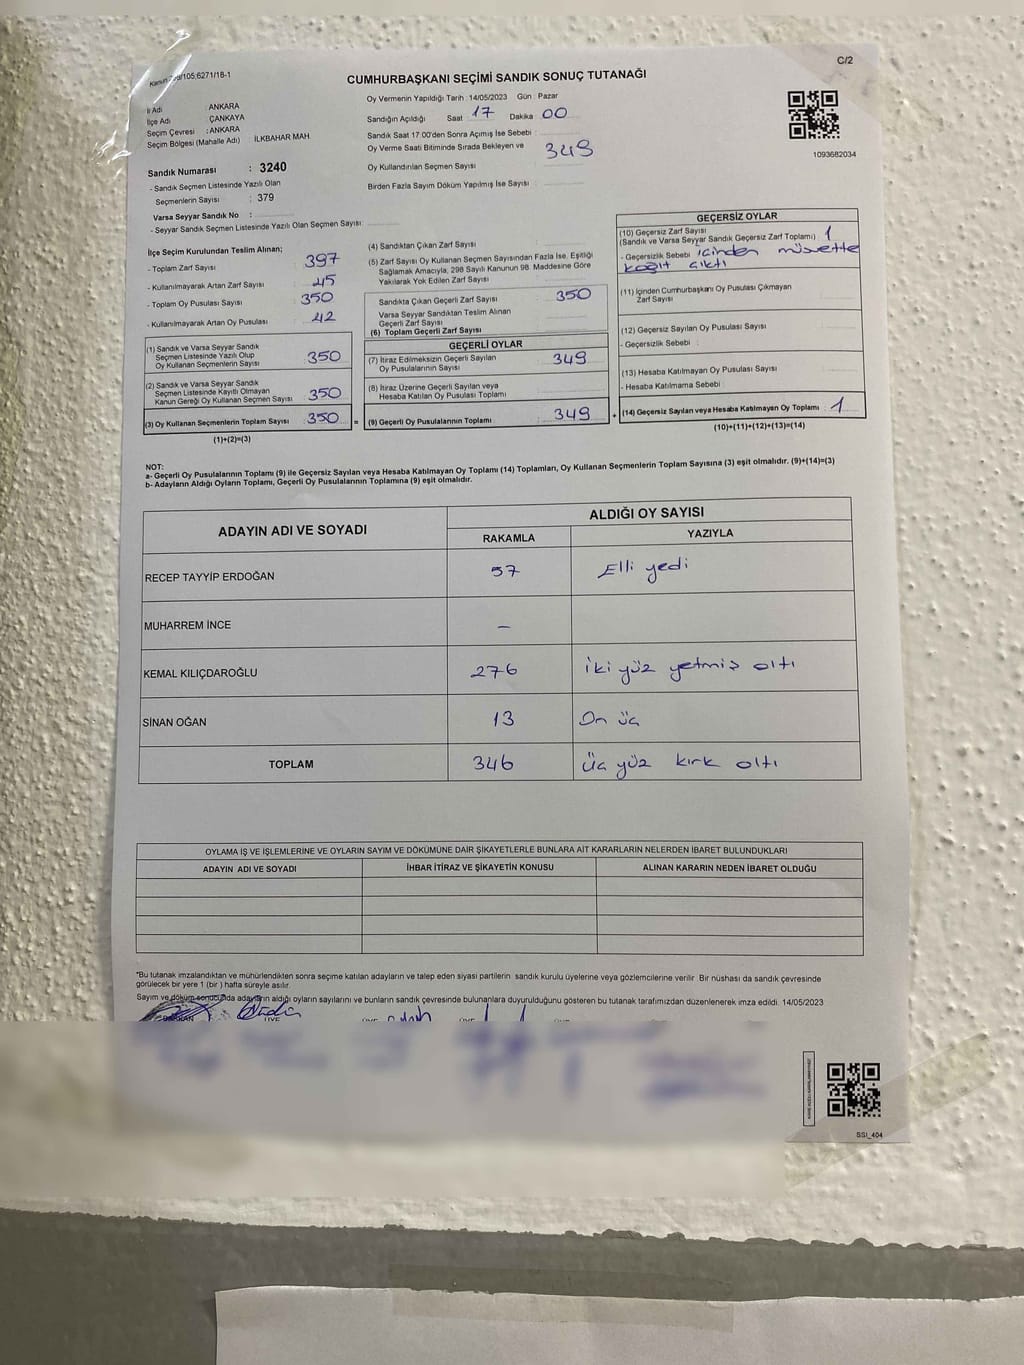 Kanun 298/105;6271/18-1
C/2
CUMHURBAŞKANI SEÇİMİ SANDIK SONUÇ TUTANAĞI
İl Adı : ANKARA
İlçe Adı : ÇANKAYA
Seçim Çevresi : ANKARA
Seçim Bölgesi (Mahalle Adı) : İLKBAHAR MAH
Sandık Numarası : 3240
- Sandık Seçmen Listesinde Yazılı Olan
Seçmenlerin Sayısı : 379
Varsa Seyyar Sandık No :
- Seyyar Sandık Seçmen Listesinde Yazılı Olan Seçmen Sayısı:
Oy Vermenin Yapıldığı Tarih :14/05/2023 Gün : Pazar
Sandığın Açıldığı Saat : 17 Dakika : 00
Sandık Saat 17:00'den Sonra Açılmış İse Sebebi :
Oy Verme Saati Bitiminde Sırada Bekleyen ve : 349
Oy Kullandırılan Seçmen Sayısı
Birden Fazla Sayım Döküm Yapılmış İse Sayısı :
1093682034
İlçe Seçim Kurulundan Teslim Alınan;
- Toplam Zarf Sayısı : 397
- Kullanılmayarak Artan Zarf Sayısı : 45
- Toplam Oy Pusulası Sayısı : 350
- Kullanılmayarak Artan Oy Pusulası : 42
(1) Sandık ve Varsa Seyyar Sandık
Seçmen Listesinde Yazılı Olup
Oy Kullanan Seçmenlerin Sayısı : 350
(2) Sandık ve Varsa Seyyar Sandık
Seçmen Listesinde Kayıtlı Olmayan
Kanun Gereği Oy Kullanan Seçmen Sayısı : 350
(3) Oy Kullanan Seçmenlerin Toplam Sayısı : 350
(1)+(2)=(3)
(4) Sandıktan Çıkan Zarf Sayısı :
(5) Zarf Sayısı Oy Kullanan Seçmen Sayısından Fazla İse, Eşitliği
Sağlamak Amacıyla, 298 Sayılı Kanunun 98. Maddesine Göre
Yakılarak Yok Edilen Zarf Sayısı :
Sandıkta Çıkan Geçerli Zarf Sayısı : 350
Varsa Seyyar Sandıktan Teslim Alınan
Geçerli Zarf Sayısı :
(6) Toplam Geçerli Zarf Sayısı :
GEÇERLİ OYLAR
(7) İtiraz Edilmeksizin Geçerli Sayılan
Oy Pusulalarının Sayısı : 349
(8) İtiraz Üzerine Geçerli Sayılan veya
Hesaba Katılan Oy Pusulası Toplamı :
= (9) Geçerli Oy Pusulalarının Toplamı : 349 +
GEÇERSİZ OYLAR
(10) Geçersiz Zarf Sayısı
(Sandık ve Varsa Seyyar Sandık Geçersiz Zarf Toplamı) : 1
- Geçersizlik Sebebi : içinden müsvette
kağıt çıktı
(11) İçinden Cumhurbaşkanı Oy Pusulası Çıkmayan
Zarf Sayısı :
(12) Geçersiz Sayılan Oy Pusulası Sayısı :
- Geçersizlik Sebebi :
(13) Hesaba Katılmayan Oy Pusulası Sayısı :
- Hesaba Katılmama Sebebi :
(14) Geçersiz Sayılan veya Hesaba Katılmayan Oy Toplamı : 1
(10)+(11)+(12)+(13)=(14)
NOT:
a- Geçerli Oy Pusulalarının Toplamı (9) ile Geçersiz Sayılan veya Hesaba Katılmayan Oy Toplamı (14) Toplamları, Oy Kullanan Seçmenlerin Toplam Sayısına (3) eşit olmalıdır. (9)+(14)=(3)
b- Adayların Aldığı Oyların Toplamı, Geçerli Oy Pusulalarının Toplamına (9) eşit olmalıdır.
ADAYIN ADI VE SOYADI
ALDIĞI OY SAYISI
RAKAMLA YAZIYLA
RECEP TAYYİP ERDOĞAN 57 Elli yedi
MUHARREM İNCE -
KEMAL KILIÇDAROĞLU 276 iki yüz yetmiş altı
SİNAN OĞAN 13 On üç
TOPLAM 346 Üç yüz kırk altı
OYLAMA İŞ VE İŞLEMLERİNE VE OYLARIN SAYIM VE DÖKÜMÜNE DAİR ŞİKAYETLERLE BUNLARA AİT KARARLARIN NELERDEN İBARET BULUNDUKLARI
ADAYIN ADI VE SOYADI İHBAR İTİRAZ VE ŞİKAYETİN KONUSU ALINAN KARARIN NEDEN İBARET OLDUĞU
*Bu tutanak imzalandıktan ve mühürlendikten sonra seçime katılan adayların ve talep eden siyasi partilerin sandık kurulu üyelerine veya gözlemcilerine verilir. Bir nüshası da sandık çevresinde
görülecek bir yere 1 (bir ) hafta süreyle asılır.
Sayım ve döküm sonucunda adayların aldığı oyların sayılarını ve bunların sandık çevresinde bulunanlara duyurulduğunu gösteren bu tutanak tarafımızdan düzenlenerek imza edildi. 14/05/2023
SSI_404